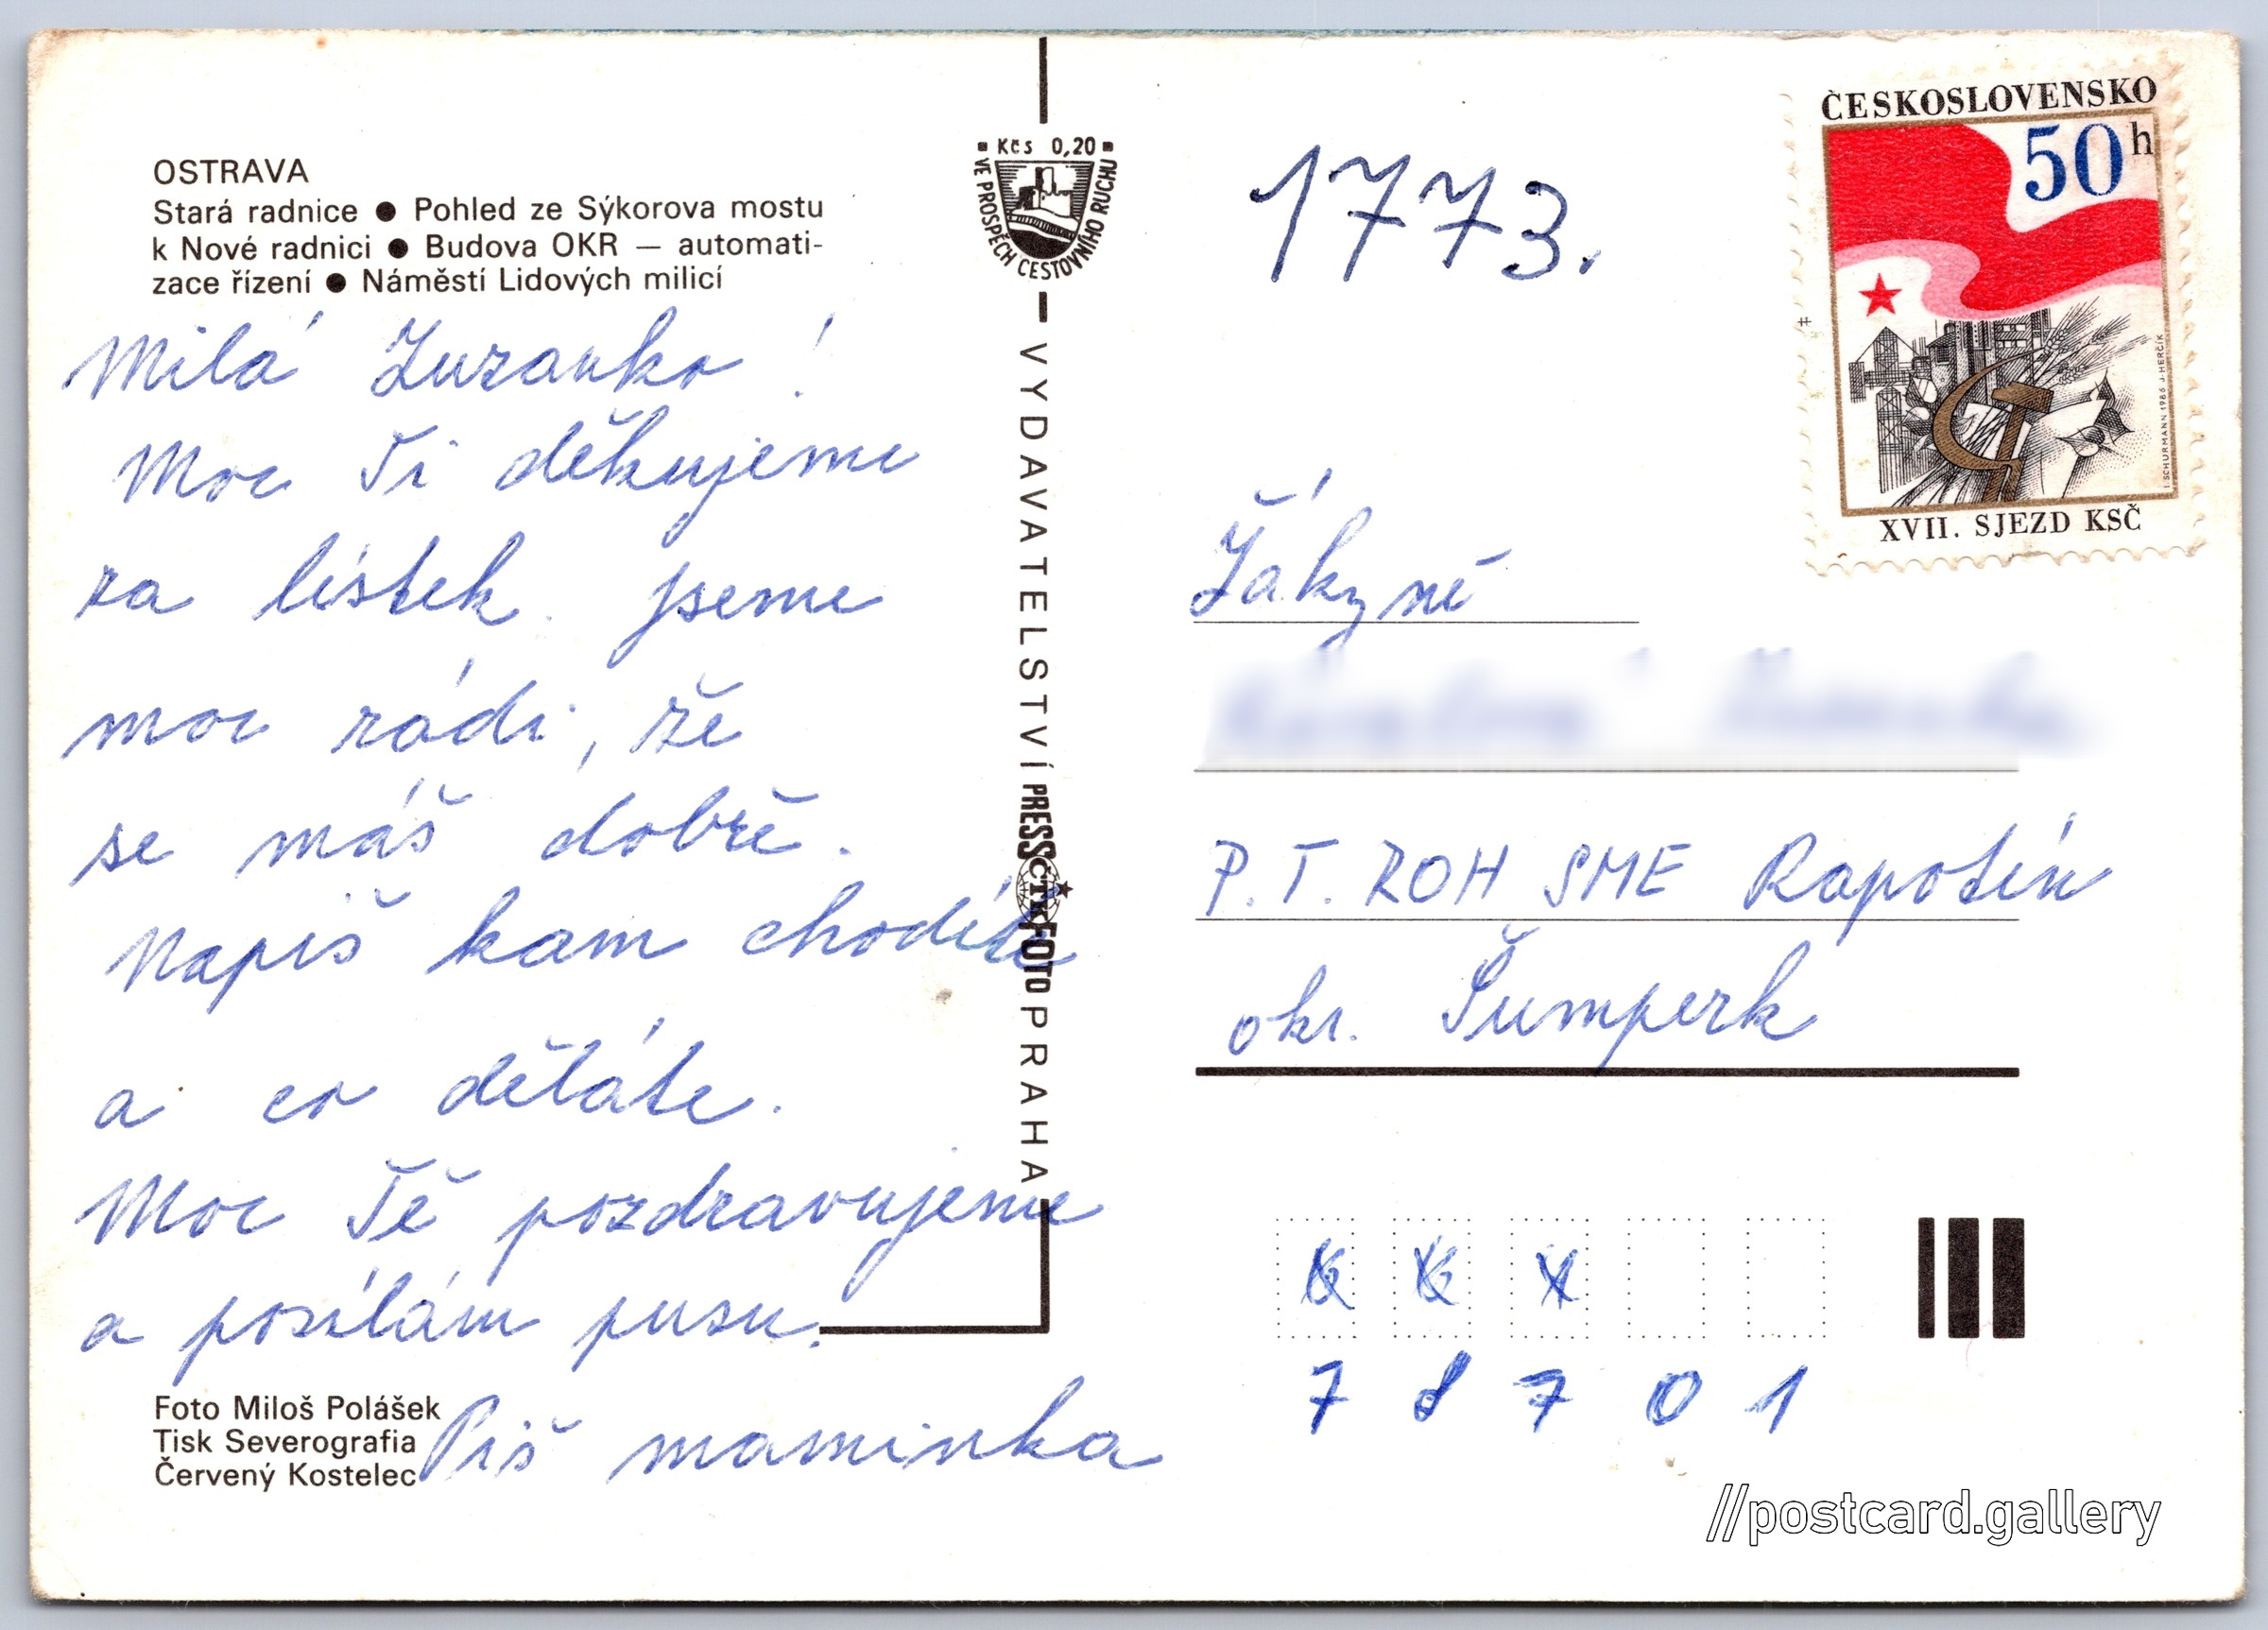 OSTRAVA
Stará radnice ● Pohled ze Sýkorova mostu
k Nové radnici ● Budova OKR — automati-
zace řízení ● Náměstí Lidových milicí
Milá Zuzanko!
Moc Ti děkujeme
za lístek. jseme
moc rádi, že
se máš dobře.
Napiš kam chodíte
a co děláte.
Moc Tě pozdravujeme
a posílám pusu.
Piš maminka
Foto Miloš Polášek
Tisk Severografia
Červený Kostelec
Kčs 0,20
VE PROSPĚCH CESTOVNÍHO RUCHU
VYDAVATELSTVÍ PRESSFOTO PRAHA
ČTK
1773.
ČESKOSLOVENSKO
50 h
I. SCHURMANN 1986 J. HERČÍK
XVII. SJEZD KSČ
Žákyně
P.T. ROH SME Rapotín
okr. Šumperk
7 8 7 0 1
//postcard.gallery